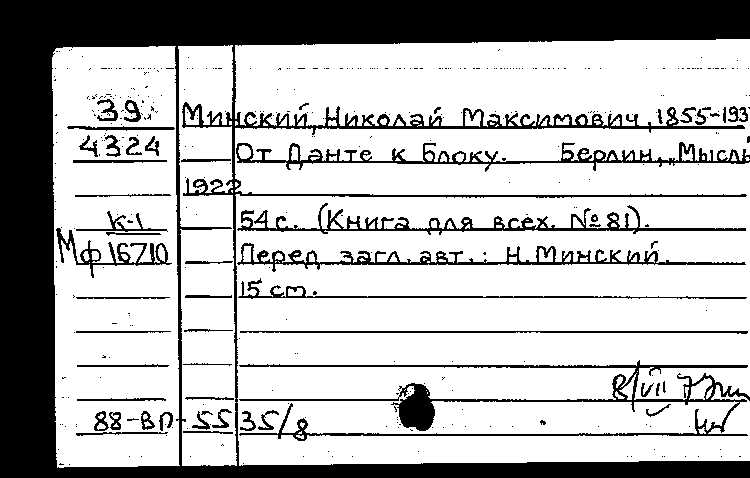 39 Минский, Николай Максимович, 1855-193
4324 От Данте к Блоку. Берлин, „Мысль
1922.
К-1 54 с. (Книга для всех. №81).
Мф 16710 Перед загл. авт.: Н. Минский.
15 cm.
8/VII
88-ВП-5535/8